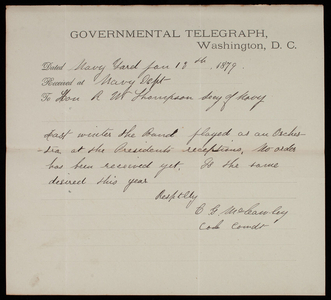 GOVERNMENTAL TELEGRAPH,
Washington, D. C.
Dated Navy Yard Jan 13th 1879.
Received at Navy Dept
To Hon R W Thompson Secy of Navy
Last winter the Band played, as an Orches-
tra at the Presidents receptions, No order
has been received yet. Is the same
desired this year
Resptlly
C G McCawley
Col Comdt